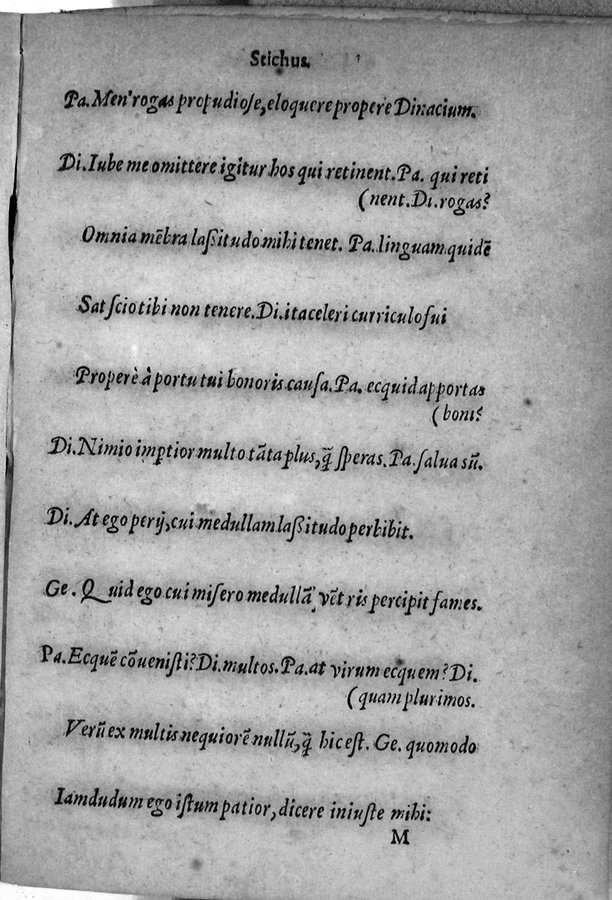 Stichus.
Pa. Men' rogas propudiose, eloquere propere Dinacium.
Di. Iube me omittere igitur hos qui retinent. Pa. qui reti
(nent. Di. rogas?
Omnia mẽbra laßitudo mihi tenet. Pa. linguam quidẽ
Sat scio tibi non tenere. Di. ita celeri curriculo fui
Properè à portu tui honoris causa. Pa. ecquid apportas
(boni?
Di. Nimio imptior multo tãta plus, q̃ speras. Pa. salua sũ.
Di. At ego perij, cui medullam laßitudo perbibit.
Ge. Quid ego cui misero medullã vẽtris percipit fames.
Pa. Ecquẽ cõuenisti? Di. multos. Pa. at virum ecquem? Di.
(quam plurimos.
Verũ ex multis nequiorẽ nullũ, q̃ hic est. Ge. quomodo
Iamdudum ego istum patior, dicere iniuste mihi:
M